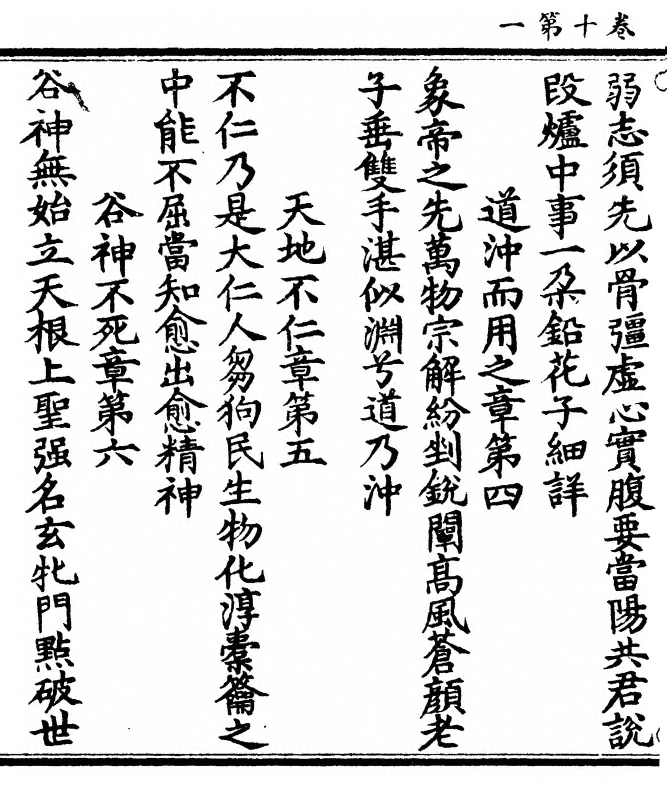 卷十第一
弱志須先以骨彊虛心實腹要當陽共君說
段爐中事一朶鉛花子細詳
道沖而用之章第四
象帝之先萬物宗解紛剉銳闡高風蒼顔老
子垂雙手湛似淵兮道乃沖
天地不仁章第五
不仁乃是大仁人芻狗民生物化淳橐籥之
中能不屈當知愈出愈精神
谷神不死章第六
谷神無始立天根上聖强名玄牝門點破世